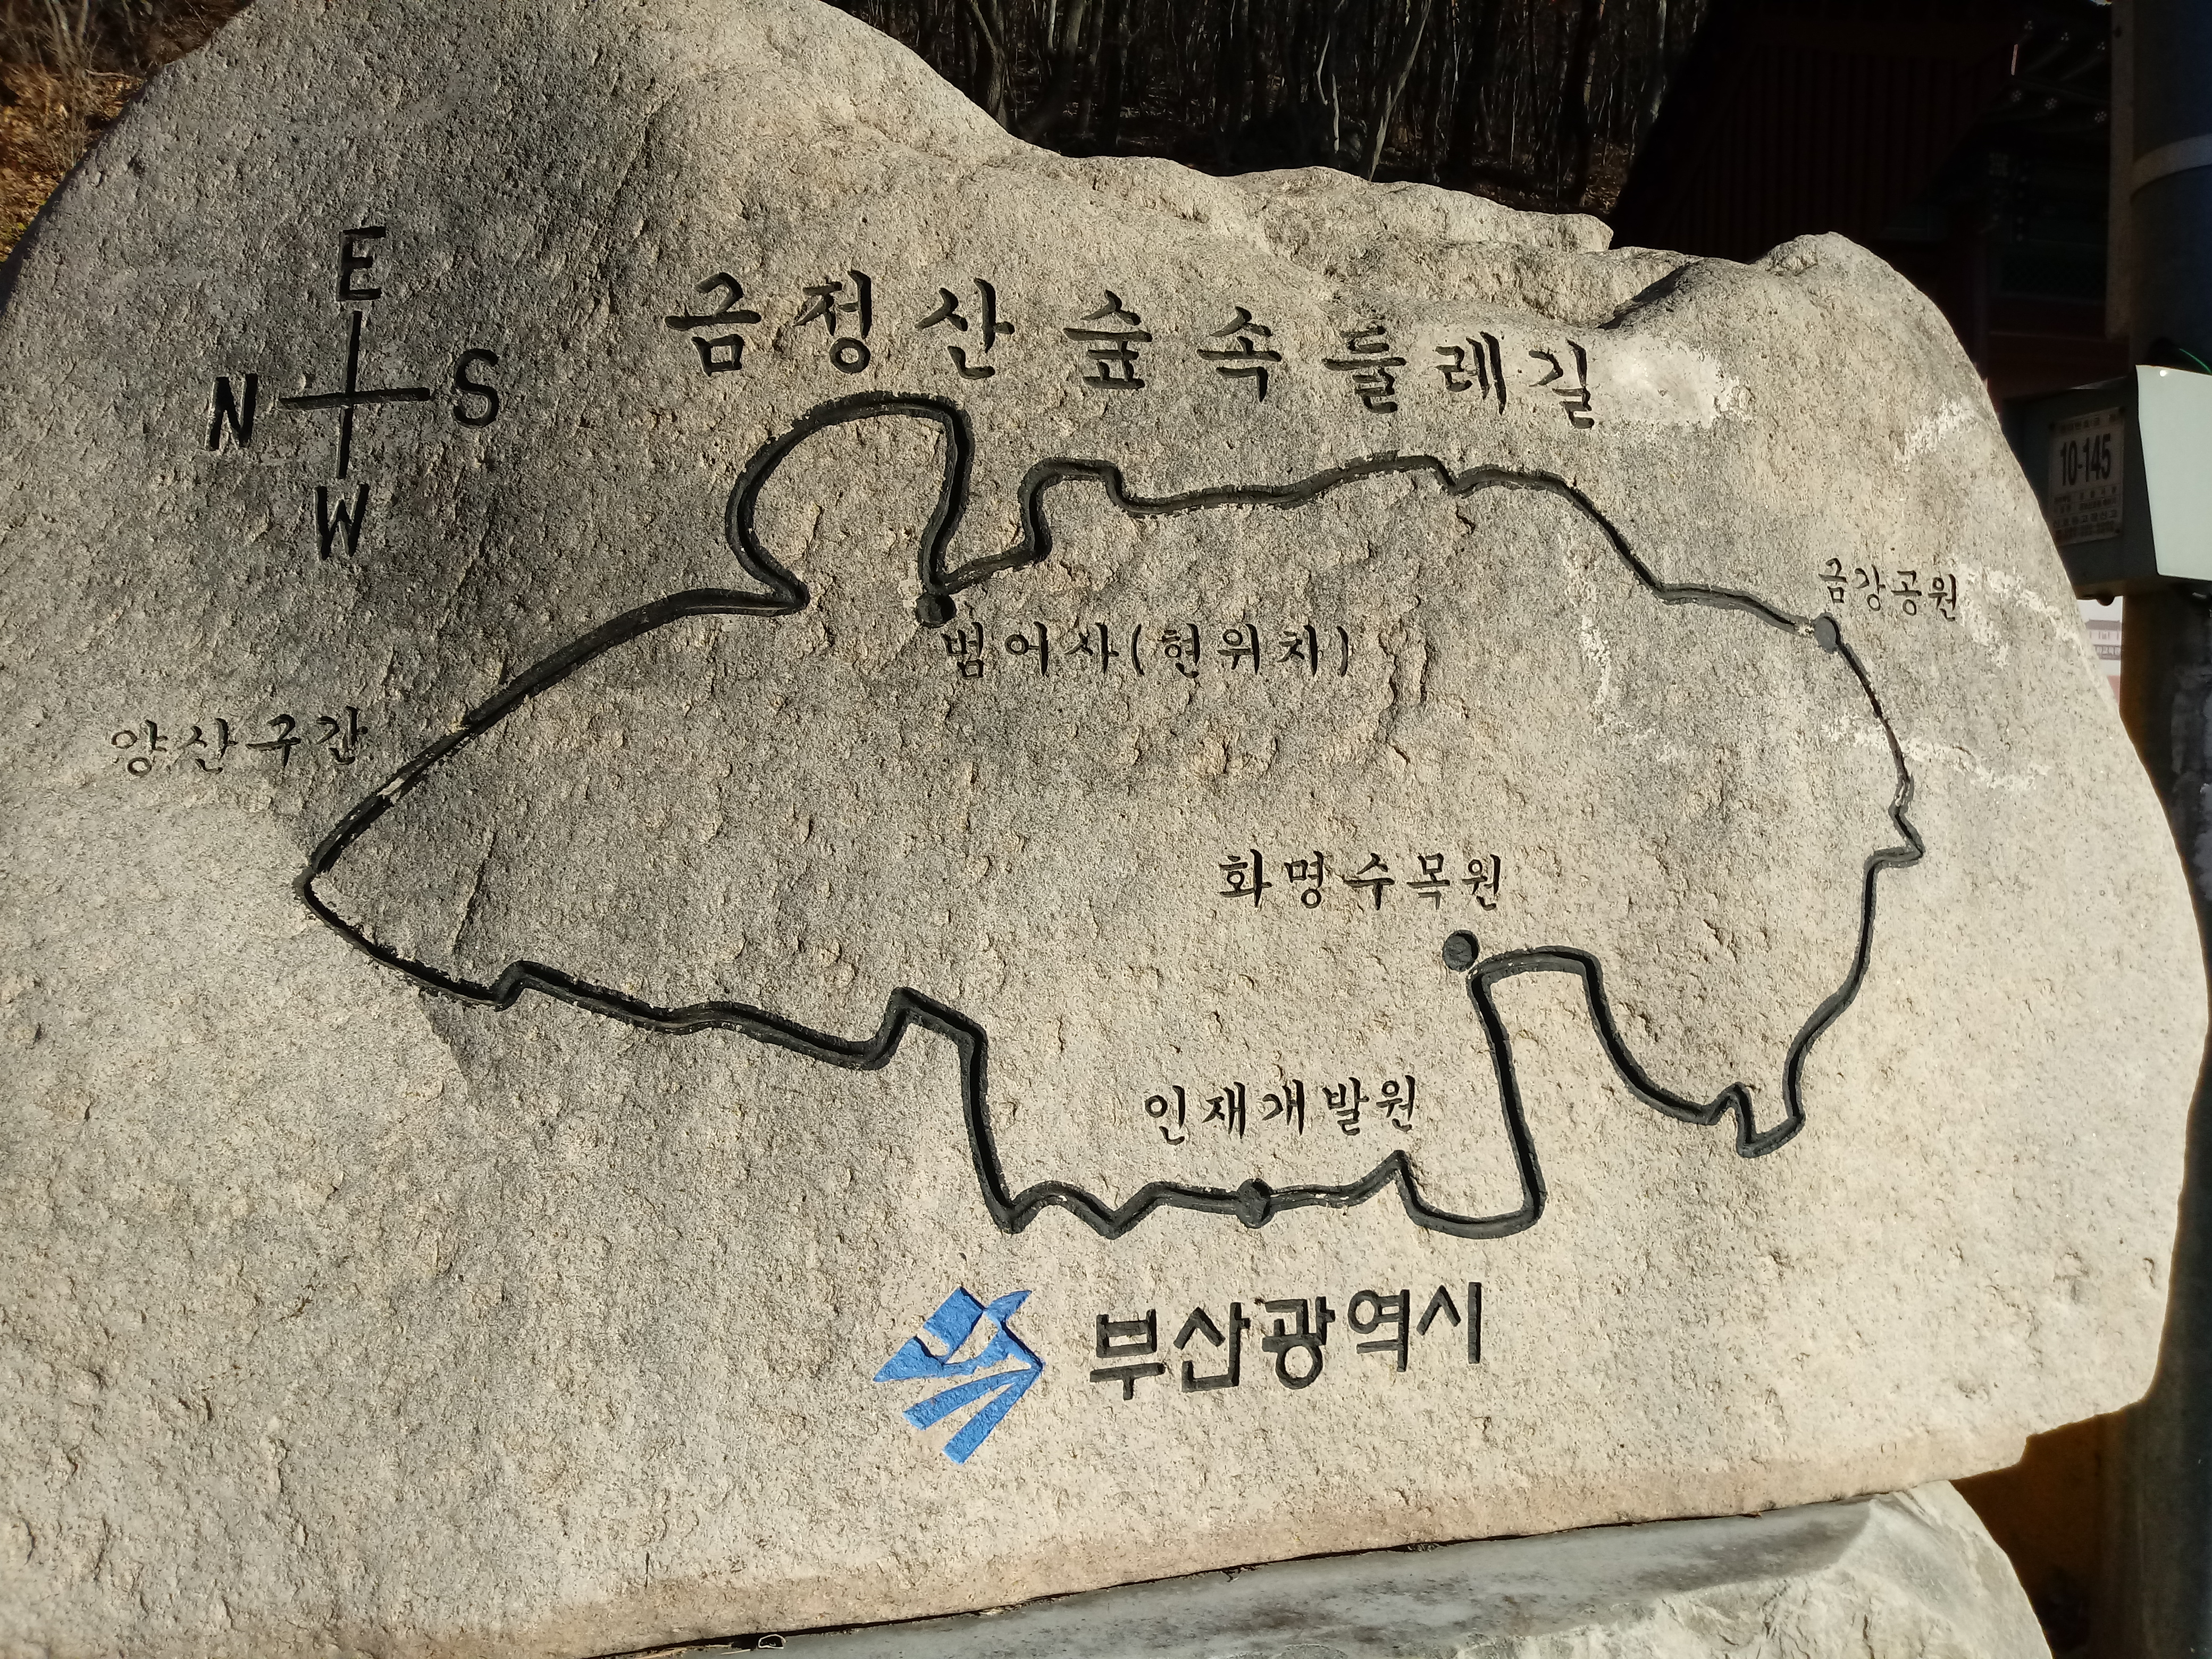 금정산 숲속 둘레길
E
N S
W
금강공원
범어사(현위치)
양산구간
화명수목원
인재개발원
부산광역시
10-145